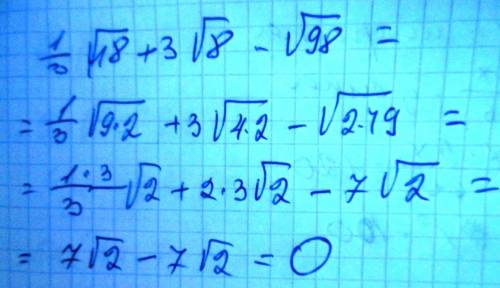 1/3 √18 + 3 √8 - √98 =
= 1/3 √9·2 + 3 √4·2 - √2·49 =
= 1·3/3 √2 + 2·3√2 - 7√2 =
= 7√2 - 7√2 = 0